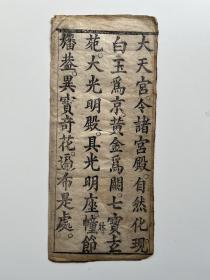 大天宮令諸宮殿自然化現
白玉爲京黃金爲闕。七寶玄
苑。大光明殿。具光明座。幢節
旛葢。異寶奇花。遍布是處。